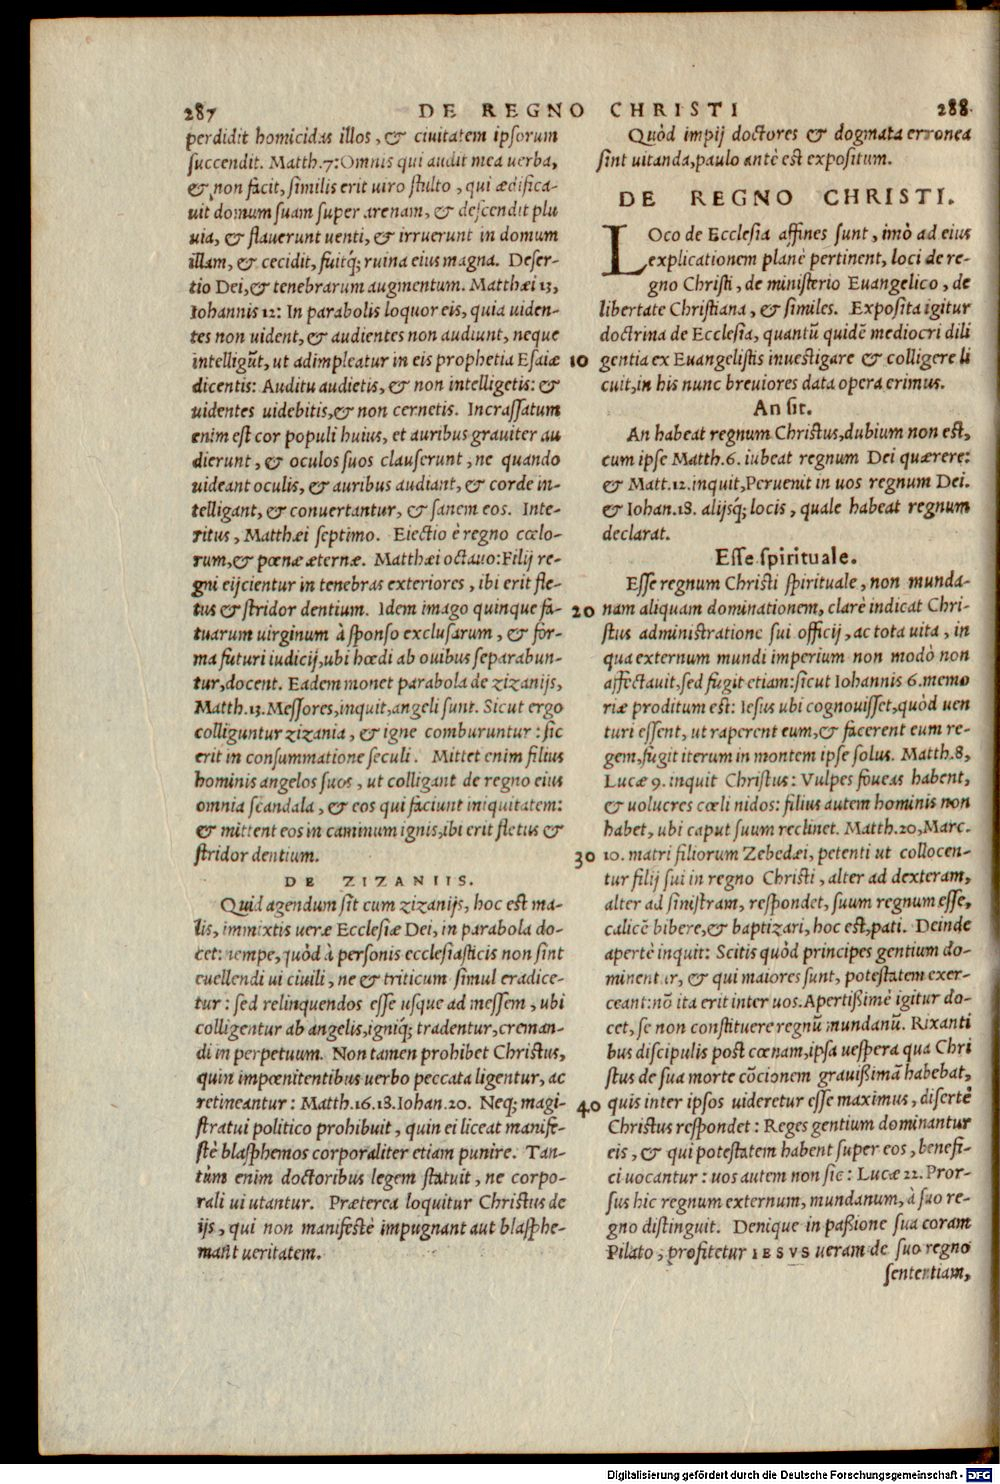 287 DE REGNO CHRISTI 288
perdidit homicidas illos, & ciuitatem ipsorum
succendit. Matth.7: Omnis qui audit mea uerba,
& non facit, similis erit uiro stulto, qui ædifica-
uit domum suam super arenam, & descendit plu
uia, & flauerunt uenti, & irruerunt in domum
illam, & cecidit, fuitq́; ruina eius magna. Deser-
tio Dei,& tenebrarum augmentum. Matthæi 13,
Iohannis 12: In parabolis loquor eis, quia uiden-
tes non uident, & audientes non audiunt, neque
intelligũt, ut adimpleatur in eis prophetia Esaiæ
dicentis: Auditu audietis, & non intelligetis: &
uidentes uidebitis,& non cernetis. Incrassatum
enim est cor populi huius, et auribus grauiter au
dierunt, & oculos suos clauserunt, ne quando
uideant oculis, & auribus audiant, & corde in-
telligant, & conuertantur, & sanem eos. Inte-
ritus, Matthæi septimo. Eiectio è regno cœlo-
rum,& pœnæ æternæ. Matthæi octauo: Filij re-
gni eijcientur in tenebras exteriores, ibi erit fle-
tus & stridor dentium. Idem imago quinque fa-
tuarum uirginum à sponso exclusarum, & for-
ma futuri iudicij,ubi hœdi ab ouibus separabun-
tur,docent. Eadem monet parabola de zizanijs,
Matth.13. Messores,inquit,angeli sunt. Sicut ergo
colliguntur zizania, & igne comburuntur: sic
erit in consummatione seculi. Mittet enim filius
hominis angelos suos, ut colligant de regno eius
omnia scandala, & eos qui faciunt iniquitatem:
& mittent eos in caminum ignis,ibi erit fletus &
stridor dentium.
DE ZIZANIIS.
Quid agendum sit cum zizanijs, hoc est ma-
lis, immixtis ueræ Ecclesiæ Dei, in parabola do-
cet: nempe, quòd à personis ecclesiasticis non sint
euellendi ui ciuili, ne & triticum simul eradice-
tur: sed relinquendos esse usque ad messem, ubi
colligentur ab angelis,igniq́; tradentur,creman-
di in perpetuum. Non tamen prohibet Christus,
quin impœnitentibus uerbo peccata ligentur, ac
retineantur: Matth.16.18. Iohan.20. Neq; magi-
stratui politico prohibuit, quin ei liceat manife-
stè blasphemos corporaliter etiam punire. Tan-
tùm enim doctoribus legem statuit, ne corpo-
rali ui utantur. Præterea loquitur Christus de
ijs, qui non manifestè impugnant aut blasphe-
mant ueritatem.
10
20
30
40
Quòd impij doctores & dogmata erronea
sint uitanda,paulo antè est expositum.
DE REGNO CHRISTI.
LOco de Ecclesia affines sunt, imò ad eius
explicationem planè pertinent, loci de re-
gno Christi, de ministerio Euangelico, de
libertate Christiana, & similes. Exposita igitur
doctrina de Ecclesia, quantũ quidẽ mediocri dili
gentia ex Euangelistis inuestigare & colligere li
cuit,in his nunc breuiores data opera erimus.
An sit.
An habeat regnum Christus,dubium non est,
cum ipse Matth.6. iubeat regnum Dei quærere:
& Matt.12. inquit,Peruenit in uos regnum Dei.
& Iohan.18. alijsq́; locis, quale habeat regnum
declarat.
Esse spirituale.
Esse regnum Christi spirituale, non munda-
nam aliquam dominationem, clarè indicat Chri-
stus administratione sui officij, ac tota uita, in
qua externum mundi imperium non modò non
affectauit,sed fugit etiam: sicut Iohannis 6. memo
riæ proditum est: Iesus ubi cognouisset,quòd uen
turi essent, ut raperent eum,& facerent eum re-
gem,fugit iterum in montem ipse solus. Matth.8,
Lucæ 9. inquit Christus: Vulpes foueas habent,
& uolucres cœli nidos: filius autem hominis non
habet, ubi caput suum reclinet. Matth.20,Marc.
10. matri filiorum Zebedæi, petenti ut collocen-
tur filij sui in regno Christi, alter ad dexteram,
alter ad sinistram, respondet, suum regnum esse,
calicẽ bibere,& baptizari, hoc est,pati. Deinde
apertè inquit: Scitis quòd principes gentium do-
minentur, & qui maiores sunt, potestatem exer-
ceant: nõ ita erit inter uos. Apertißimè igitur do-
cet, se non constituere regnũ mundanũ. Rixanti
bus discipulis post cœnam,ipsa uespera qua Chri
stus de sua morte cõcionem grauißimã habebat,
quis inter ipsos uideretur esse maximus, disertè
Christus respondet: Reges gentium dominantur
eis, & qui potestatem habent super eos, benefi-
ci uocantur: uos autem non sic: Lucæ 22. Pror-
sus hic regnum externum, mundanum, à suo re-
gno distinguit. Denique in paßione sua coram
Pilato, profitetur IESVS ueram de suo regno
sententiam,
Digitalisierung gefördert durch die Deutsche Forschungsgemeinschaft - DFG